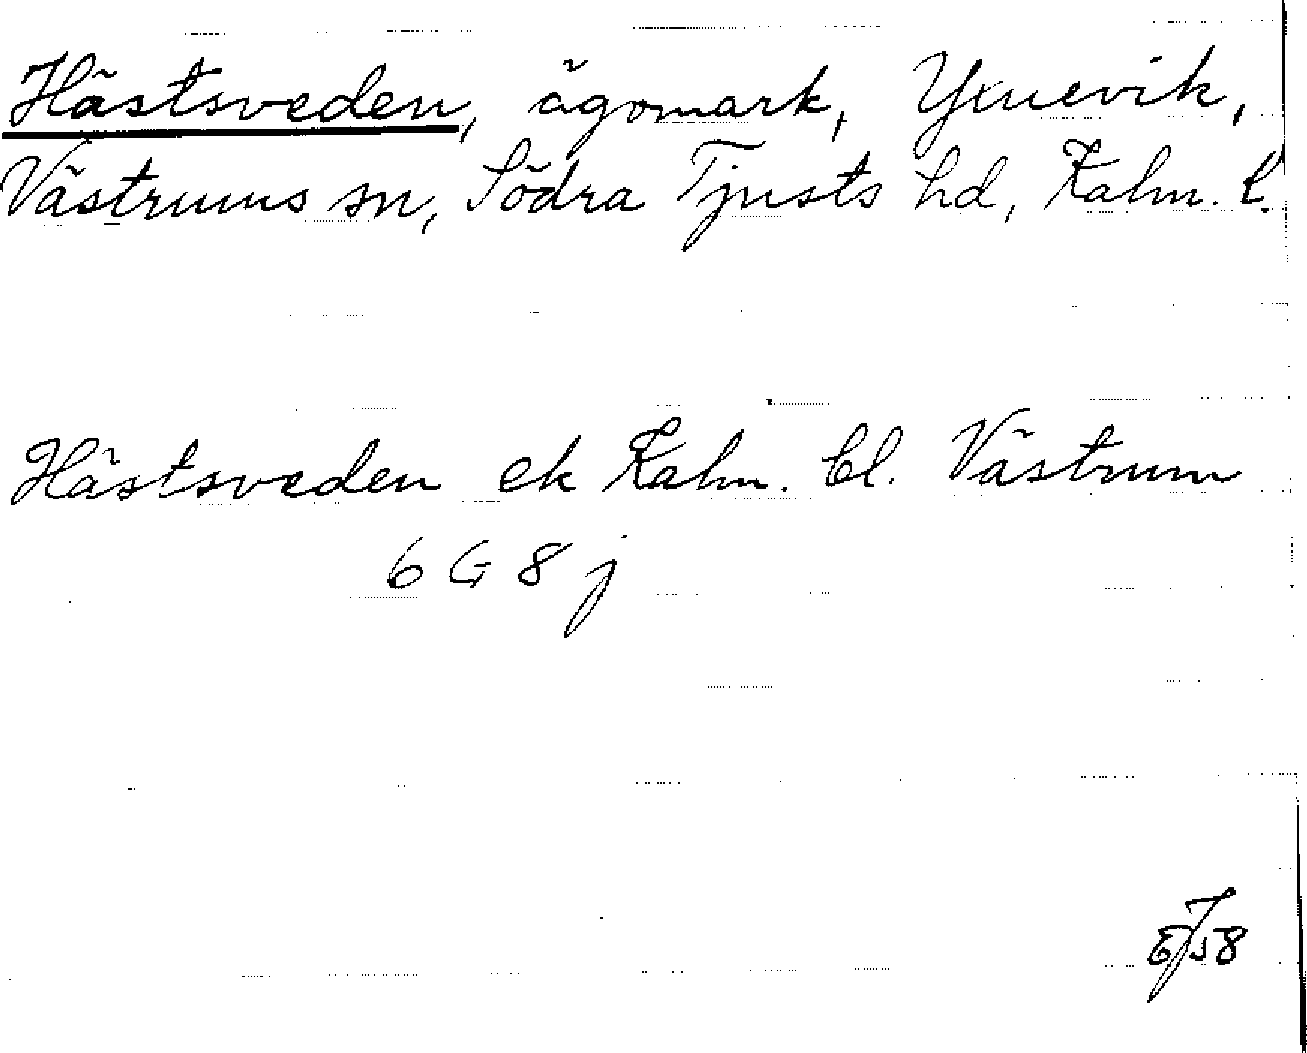 Hästsveden, ägomark, Yxnevik,
Västrums sn, Södra Tjusts hd, Kalm. l.
Hästsveden ek Kalm. bl. Västrum
6 G 8 j